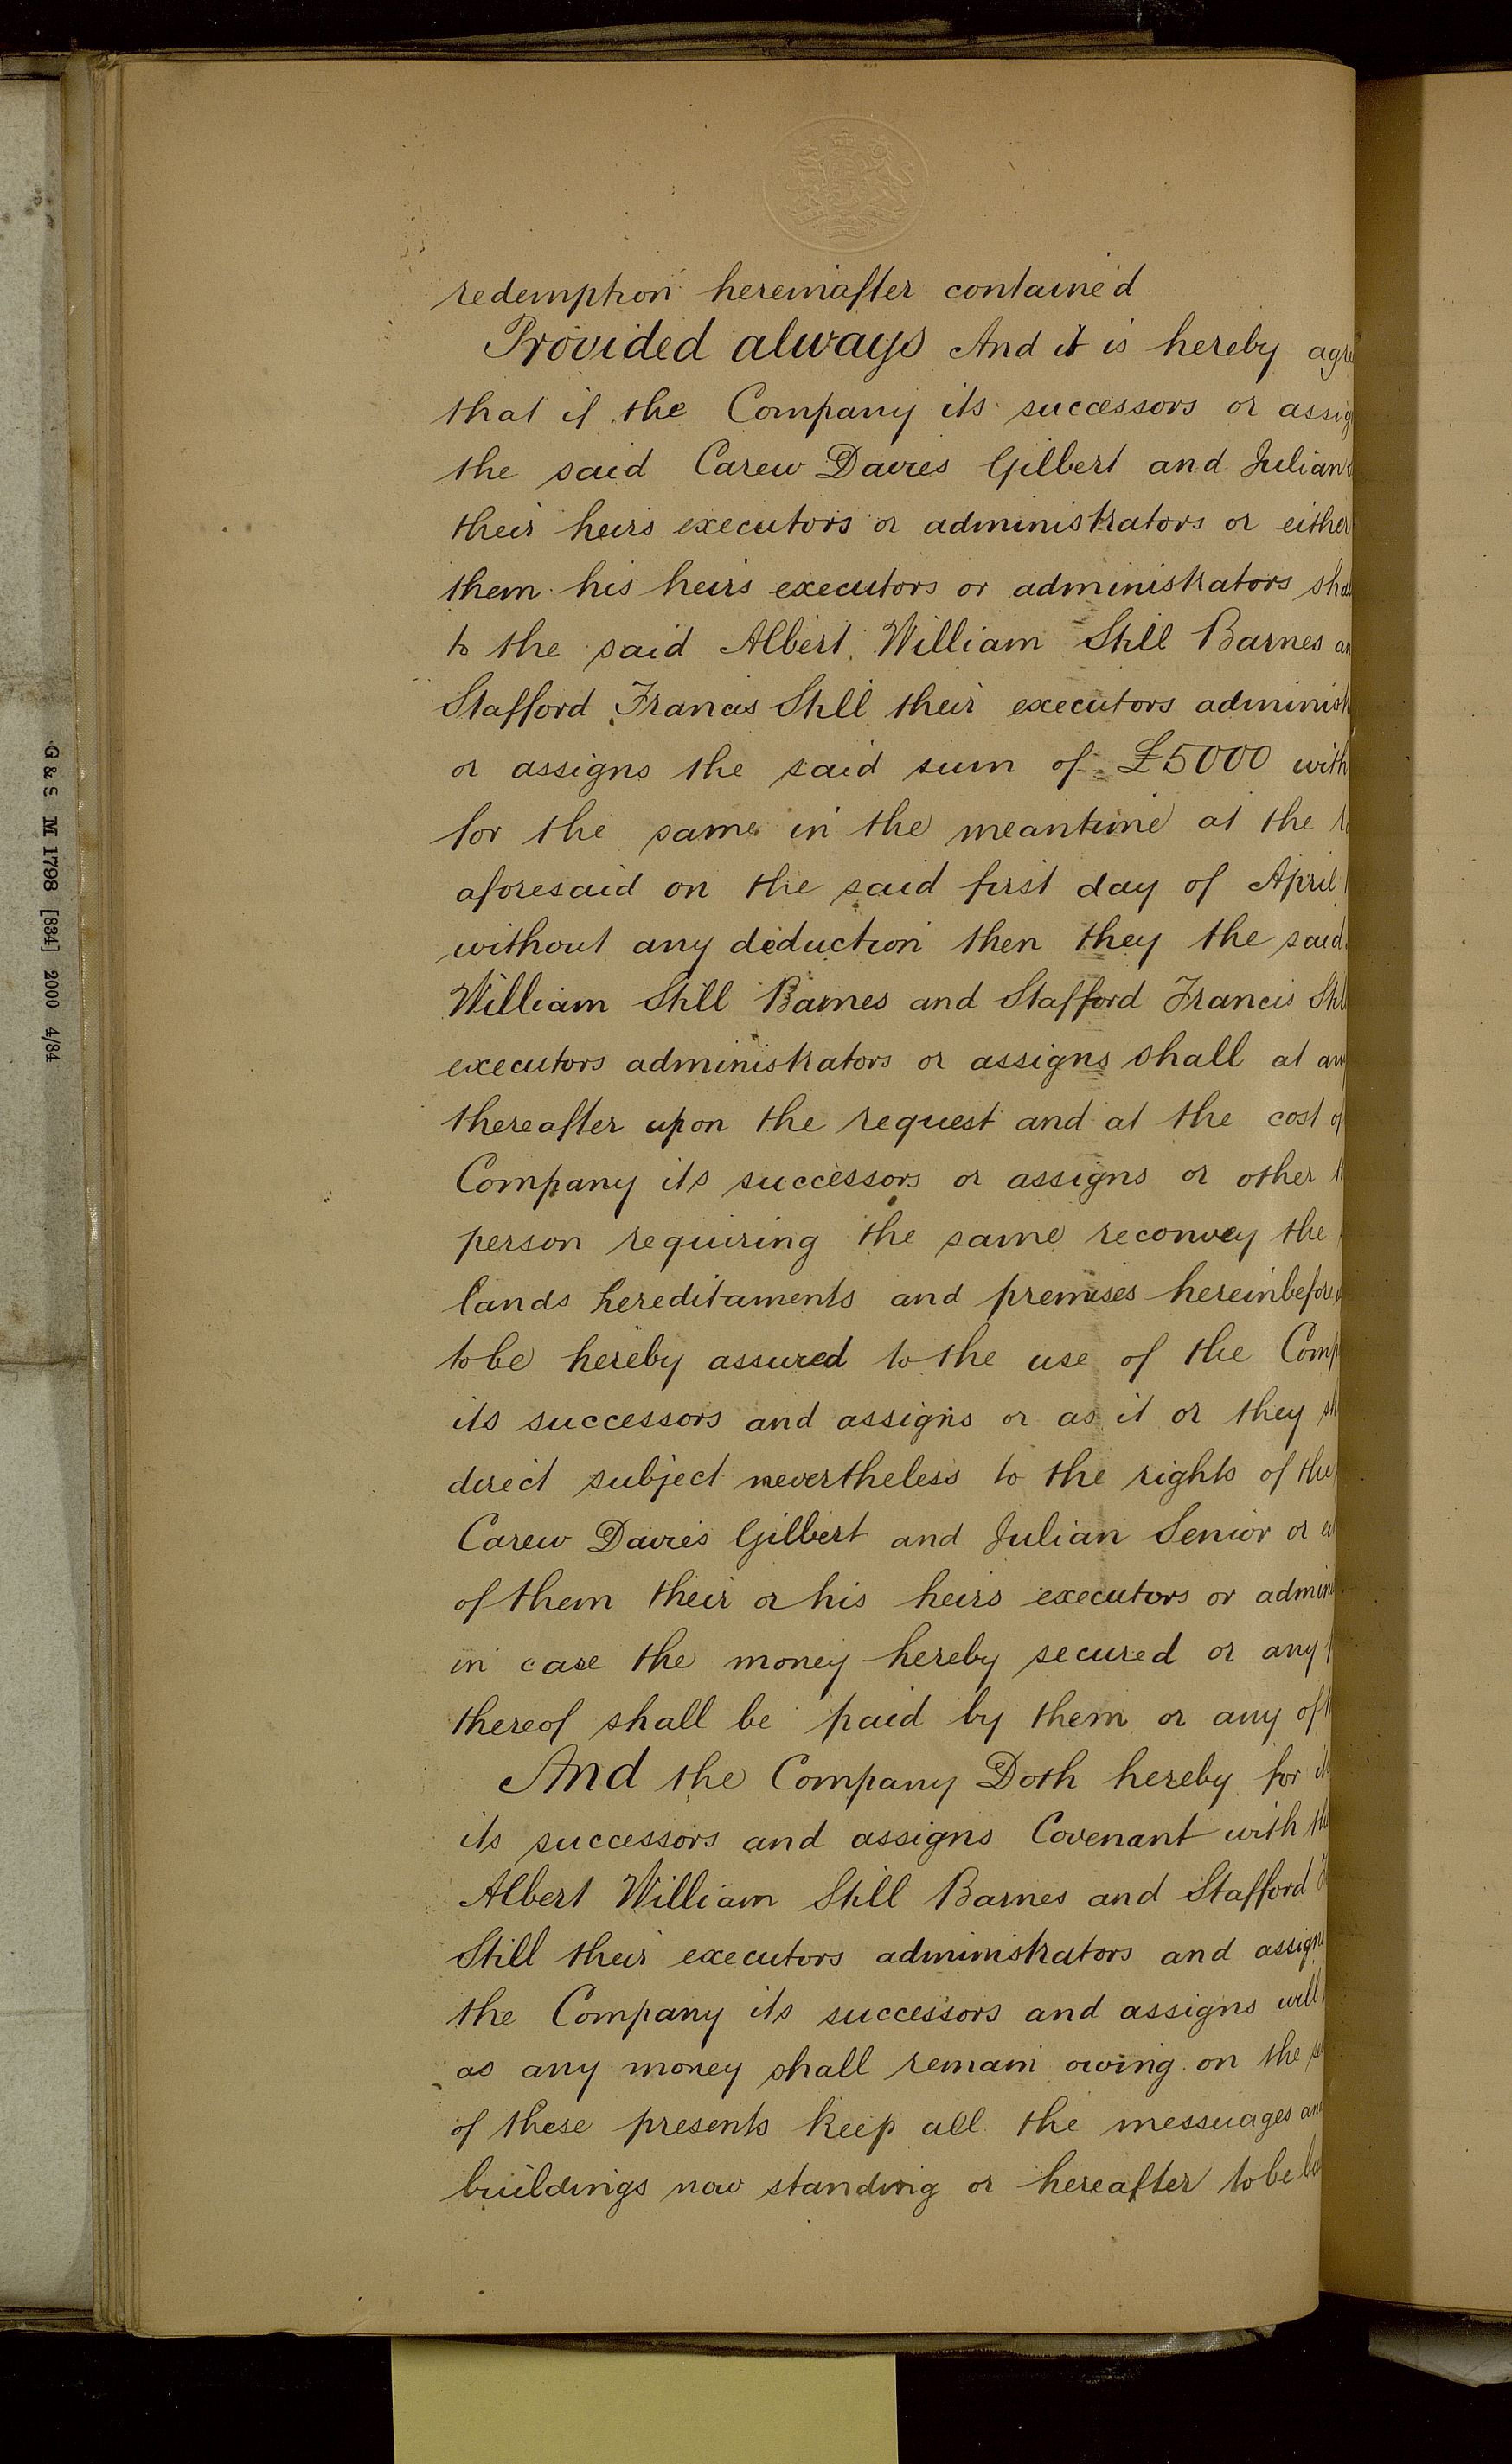 redemption hereinafter contained
Provided always And it is hereby agre
that if the Company its successors or assig
the said Carew Davies Gilbert and Julian
their heirs executors or administrators or either
them his heirs executors or administrators sha
to the said Albert William Still Barnes an
Stafford Francis Still their executors administ
or assigns the said sum of £5000 with
for the same in the meantime at the
aforesaid on the said first day of April
without any deduction then they the said
William Still Barnes and Stafford Francis Still
executors administrators or assigns shall at any
thereafter upon the request and at the cost of
Company its successors or assigns or other
person requiring the same reconvey the
lands hereditaments and premises hereinbefore
to be hereby assured to the use of the Comp
its successors and assigns or as it or they sh
direct subject nevertheless to the rights of the
Carew Davies Gilbert and Julian Senior or ei
of them their or his heirs executors or admin
in case the money hereby secured or any
thereof shall be paid by them or any of
And the Company Doth hereby for it
its successors and assigns Covenant with the
Albert William Still Barnes and Stafford
Still their executors administrators and assigns
the Company its successors and assigns will
as any money shall remain owing on the se
of these presents keep all the messuages and
buildings now standing or hereafter to be bu
G & S M 1798 [834] 2000 4/84